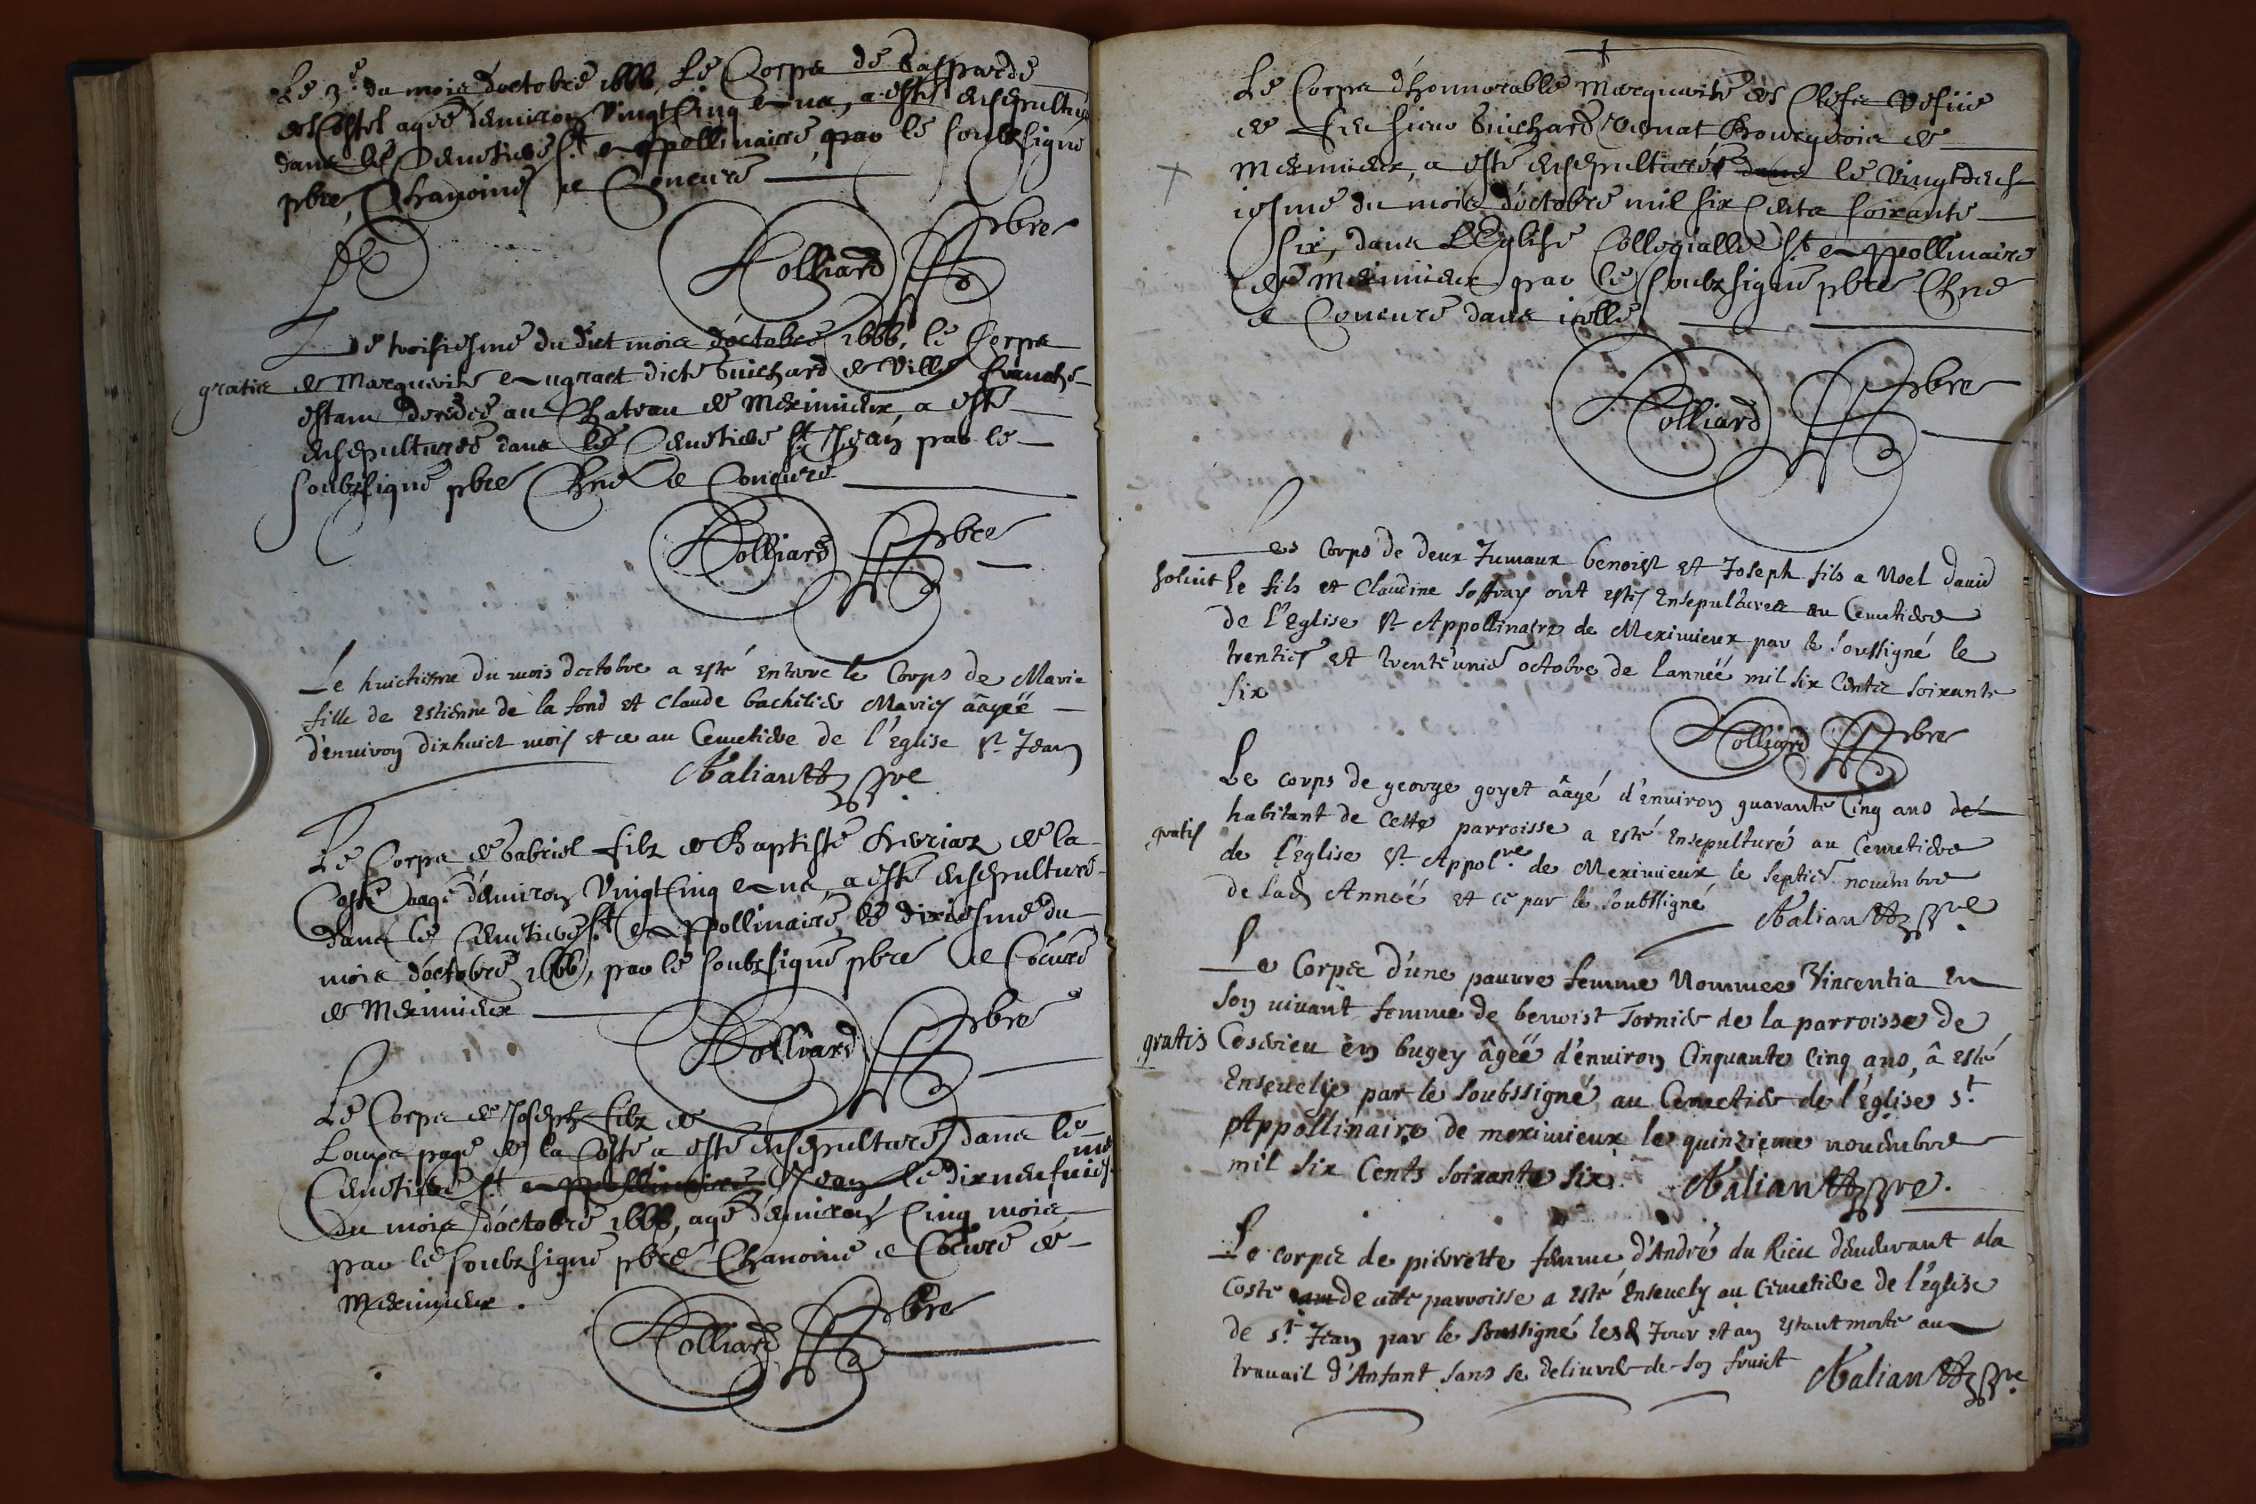 Le 3e du mois doctobre 1666, Le Corps de Gasparde
agee denviron vingt Cinq ans, a esté ensepulturé
dans le Cemetiere St Appollinaire, par le soubzsigné
pbre, Chanoine et Concuré
Lolliard pbre
Le troisiesme du dict mois doctobre 1666, le Corps
gratis
de Marguerite dicte Guichard de Ville franche
estant au Chateau de Meximieux, a esté
ensepulturée dans le Cemetiere St Jean par le
soubzsigné pbre Chne et Concuré
Lolliard pbre
Le huictieme du mois doctobre a esté enterré le Corps de Marie
fille de Estienne de la fond et Claude Mariés aagéé
d'enuiron dixhuict mois et ce au Cemetiere de l'Eglise St Jean
pre
Le Corps de Gabriel filz de Baptiste de la
Coste aagé d'enuiron Vingt Cinq ans, a esté ensepulturé
dans le Cemetiere St Appollinaire, le dixiesme du
mois d'octobre 1666, par le soubzsigné pbre et Cōcuré
de Meximieux
Lolliard pbre
Le Corps de Joseph filz de
Loups page de la Coste a esté ensepulturé dans le
Cemetiere St Appollinaire Jean le dixneufuies-
me
du mois d'octobre 1666, agé d'enuiron Cinq mois
par le soubzsigné pbre Chanoine et Cōcuré de
Meximieux.
Lolliard pbre
Le Corps d'honnorable Marguerite des Clefs vefue
de feu sieur Guichard Bourgeois de
Meximieux, a esté ensepulturée dans le Vingtdeux
iesme du mois d'octobre mil six Cents soixante
six, dans L'Eglise Collegialle St Appollinaire
de Meximieux par le soubzsigné pbre Chne
et Concuré dans icelle
Lolliard pbre
Les Corps de deux Jumaux benoist et Joseph fils a Noel dauid
soluit
le fils et Claudine Soffray ont estés Ensepulturez au Cemetiere
de l'Eglise St Appollinaire de Meximieux par le soussigné le
trentie et trente unie octobre de lannéé mil six Cents soixante
six
Lolliard pbre
Le corps de george goyet ââgé d'enuiron quarante Cinq ans de
habitant de Cette parroisse a esté Ensepulturé au Cemetiere
gratis
de l'Eglise St Appolre de Meximieux le septie nouembre
de lad Annéé et ce par le soubssigné
pre
Le Corps d'une pauure femme Nommee Vincentia en
son viuant femme de benoist Tornier de la parroisse de
gratis
en bugey âgéé d'enuiron Cinquante Cinq ans, â esté
Enseuelie par le soubssigné au Cemetiere de l'église St
Appollinaire de meximieux le quinzieme nouembre
mil six Cents soixante six.
pre.
Le corps de pierrette femme d'André du Rieu demeurant ala
Coste de cette parroisse a esté Enseuely au Cimetiere de l'église
de St Jean par le Soussigné lesd Jour et an estant morte au
trauail d'Anfant sans se deliurer de son fruict
pre